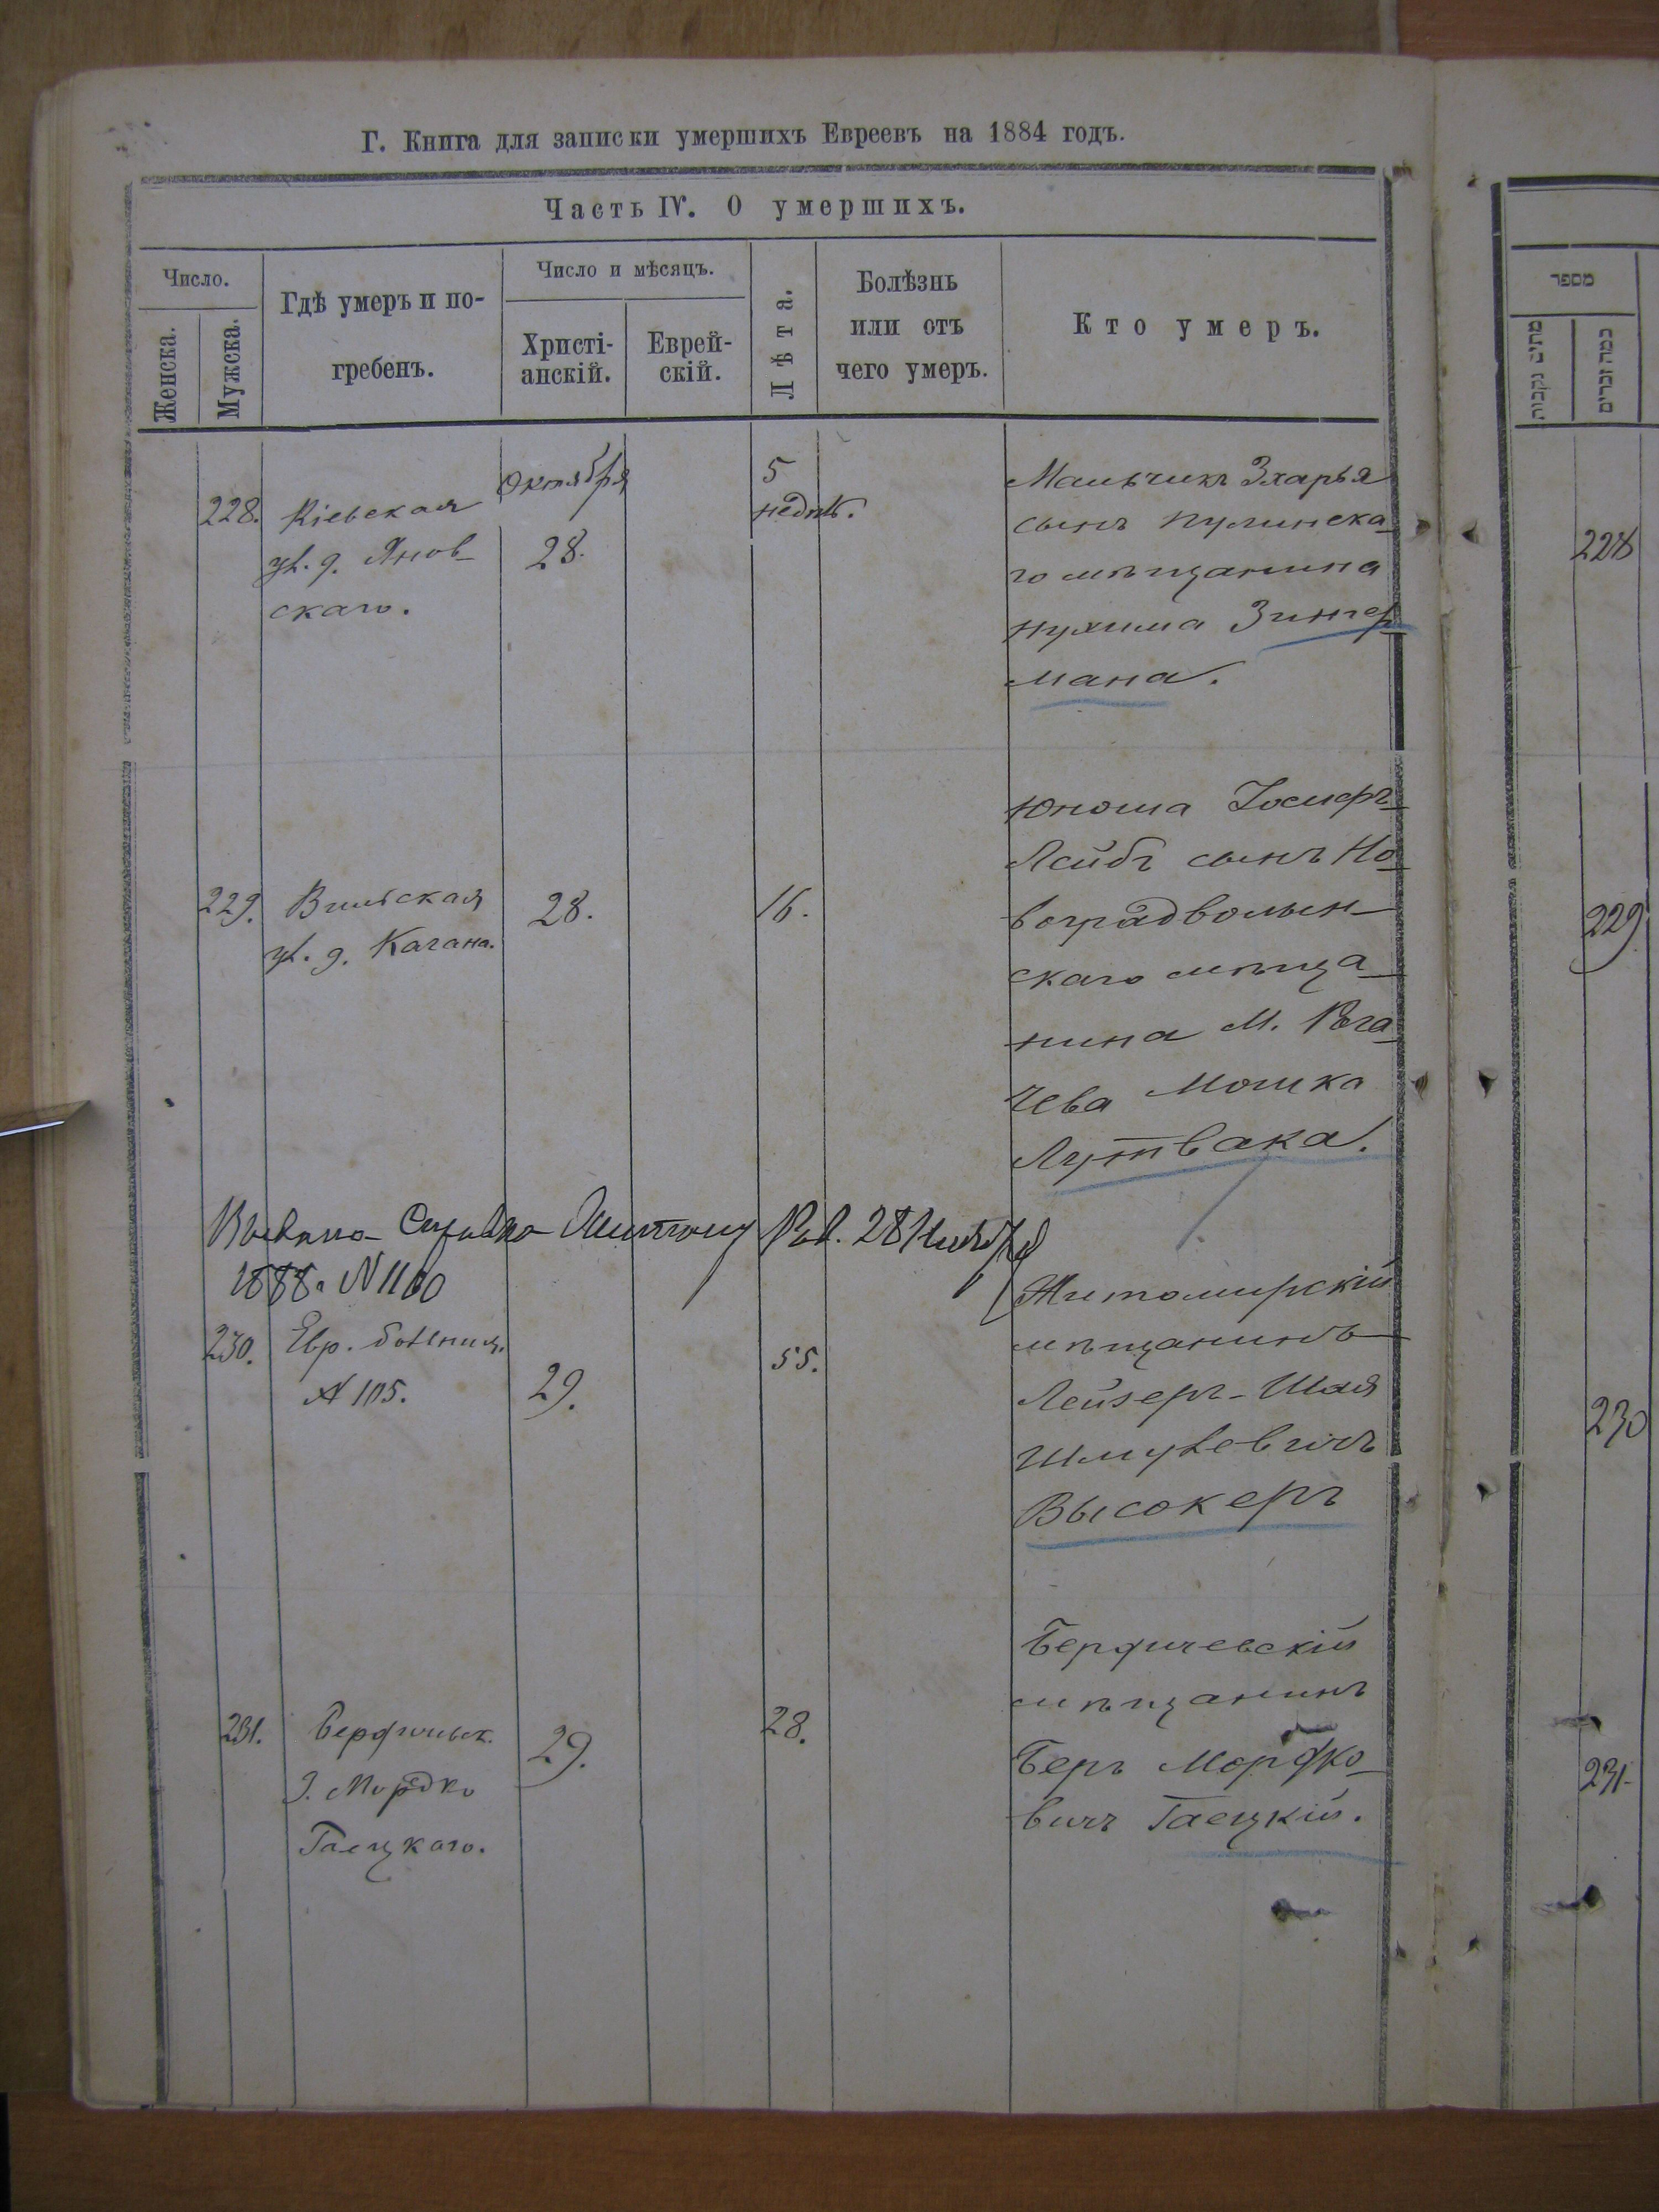 Г. Книга для записки умершихъ Евреевъ на 1884 годъ.
Часть IV. О умершихъ.
Число.
Женска.
Мужска.
Гдѣ умеръ и по-
гребенъ.
Число и мѣсяцъ.
Христі-
анскій.
Еврей-
скій.
Лѣта.
Болѣзнь
или отъ
чего умеръ.
Кто умеръ.
228.
Кіевская
ул. д. Янов-
скаго.
Октября
28.
5
недѣл.
Мальчикъ Зхарья
сынъ Пулинска-
го мѣщанина
Нухима Зингер-
мана.
229.
Вильская
ул. д. Кагана.
28.
16.
Юноша Іосифъ-
Лейбъ сынъ Но-
воградволын-
скаго мѣща-
нина М. Рога-
чева Мошка
Лутвака.
Выдана Справка
1888 г. N 1160
230.
Евр. больница.
N 105.
29.
55.
Житомирскій
мѣщанинъ
Лейзеръ-Шая
Шмулевичъ
Высокеръ
231.
Бердичевск.
д. Мордко
Гаецкаго.
29.
28.
Бердичевскій
мѣщанинъ
Беръ Мордко-
вичъ Гаецкій.
מספר
מתים נקבות
כמה זכרים
228
229
230
231